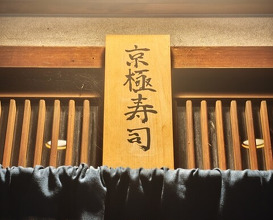 京極寿司